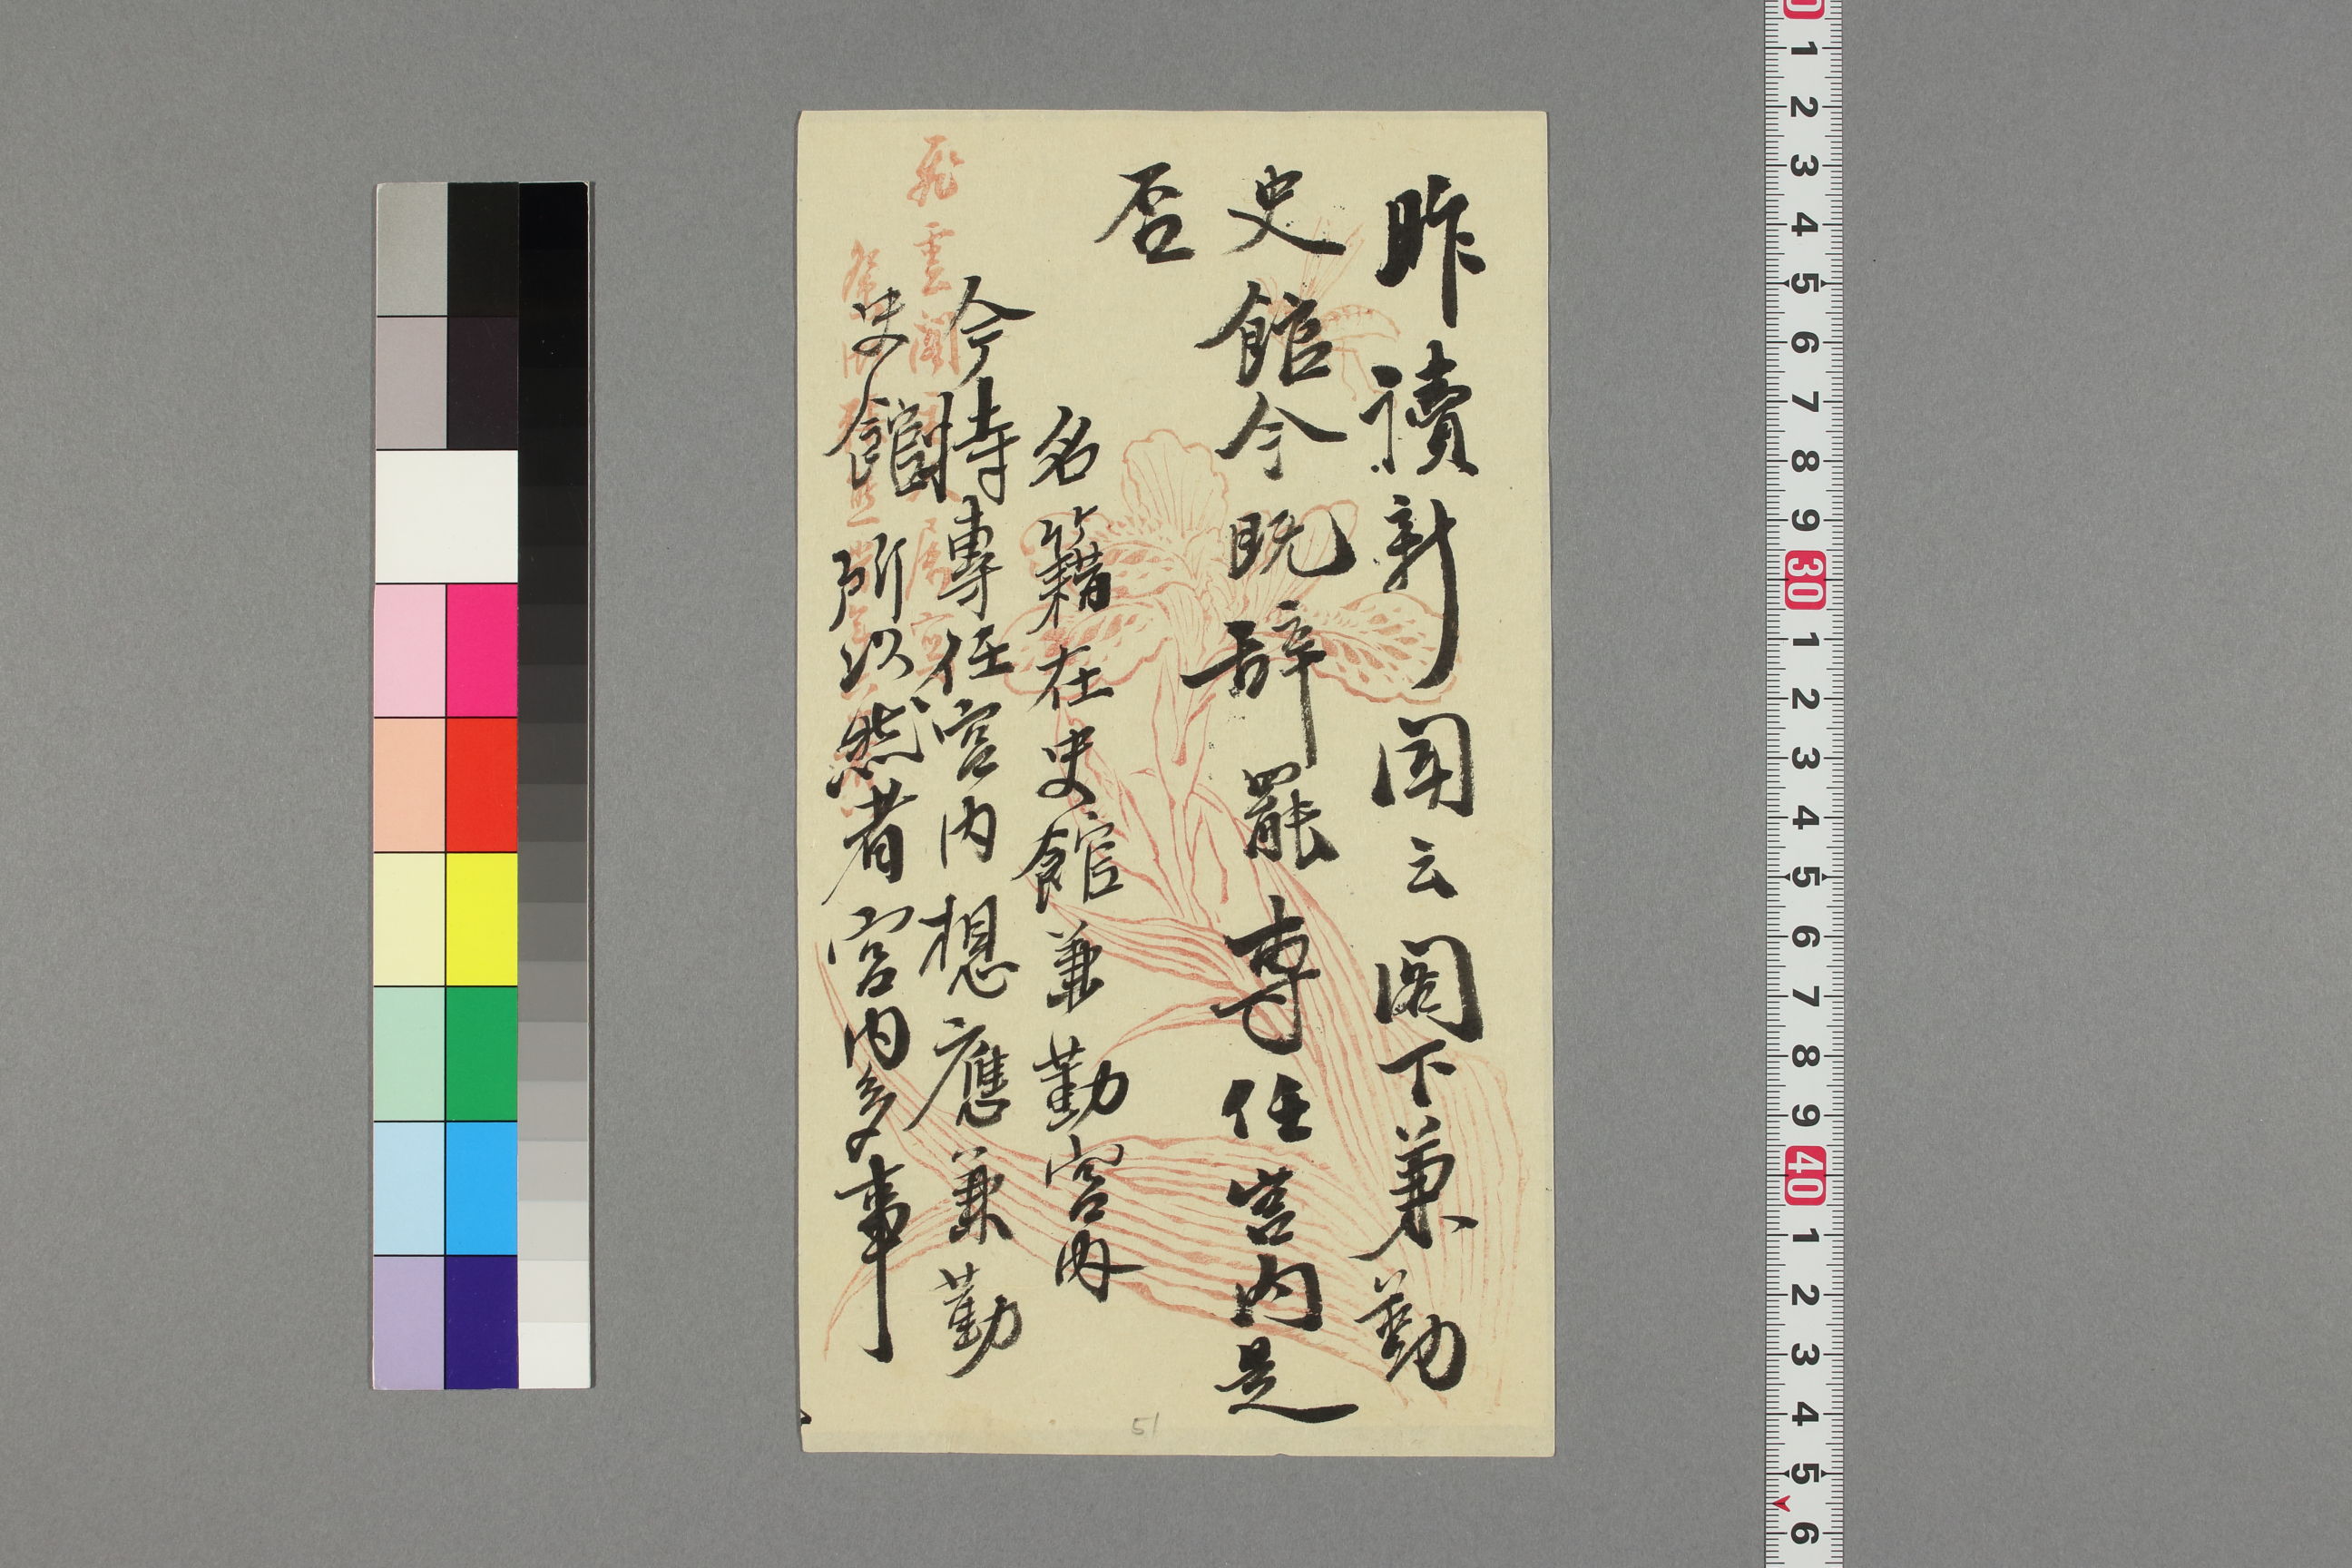 昨讀新聞云閣下兼勤
史館今既辞罷専任宮内是
否
名籍在史館兼勤宮内
今特專任宮内想應兼勤
史館所以然者宮内多事
51